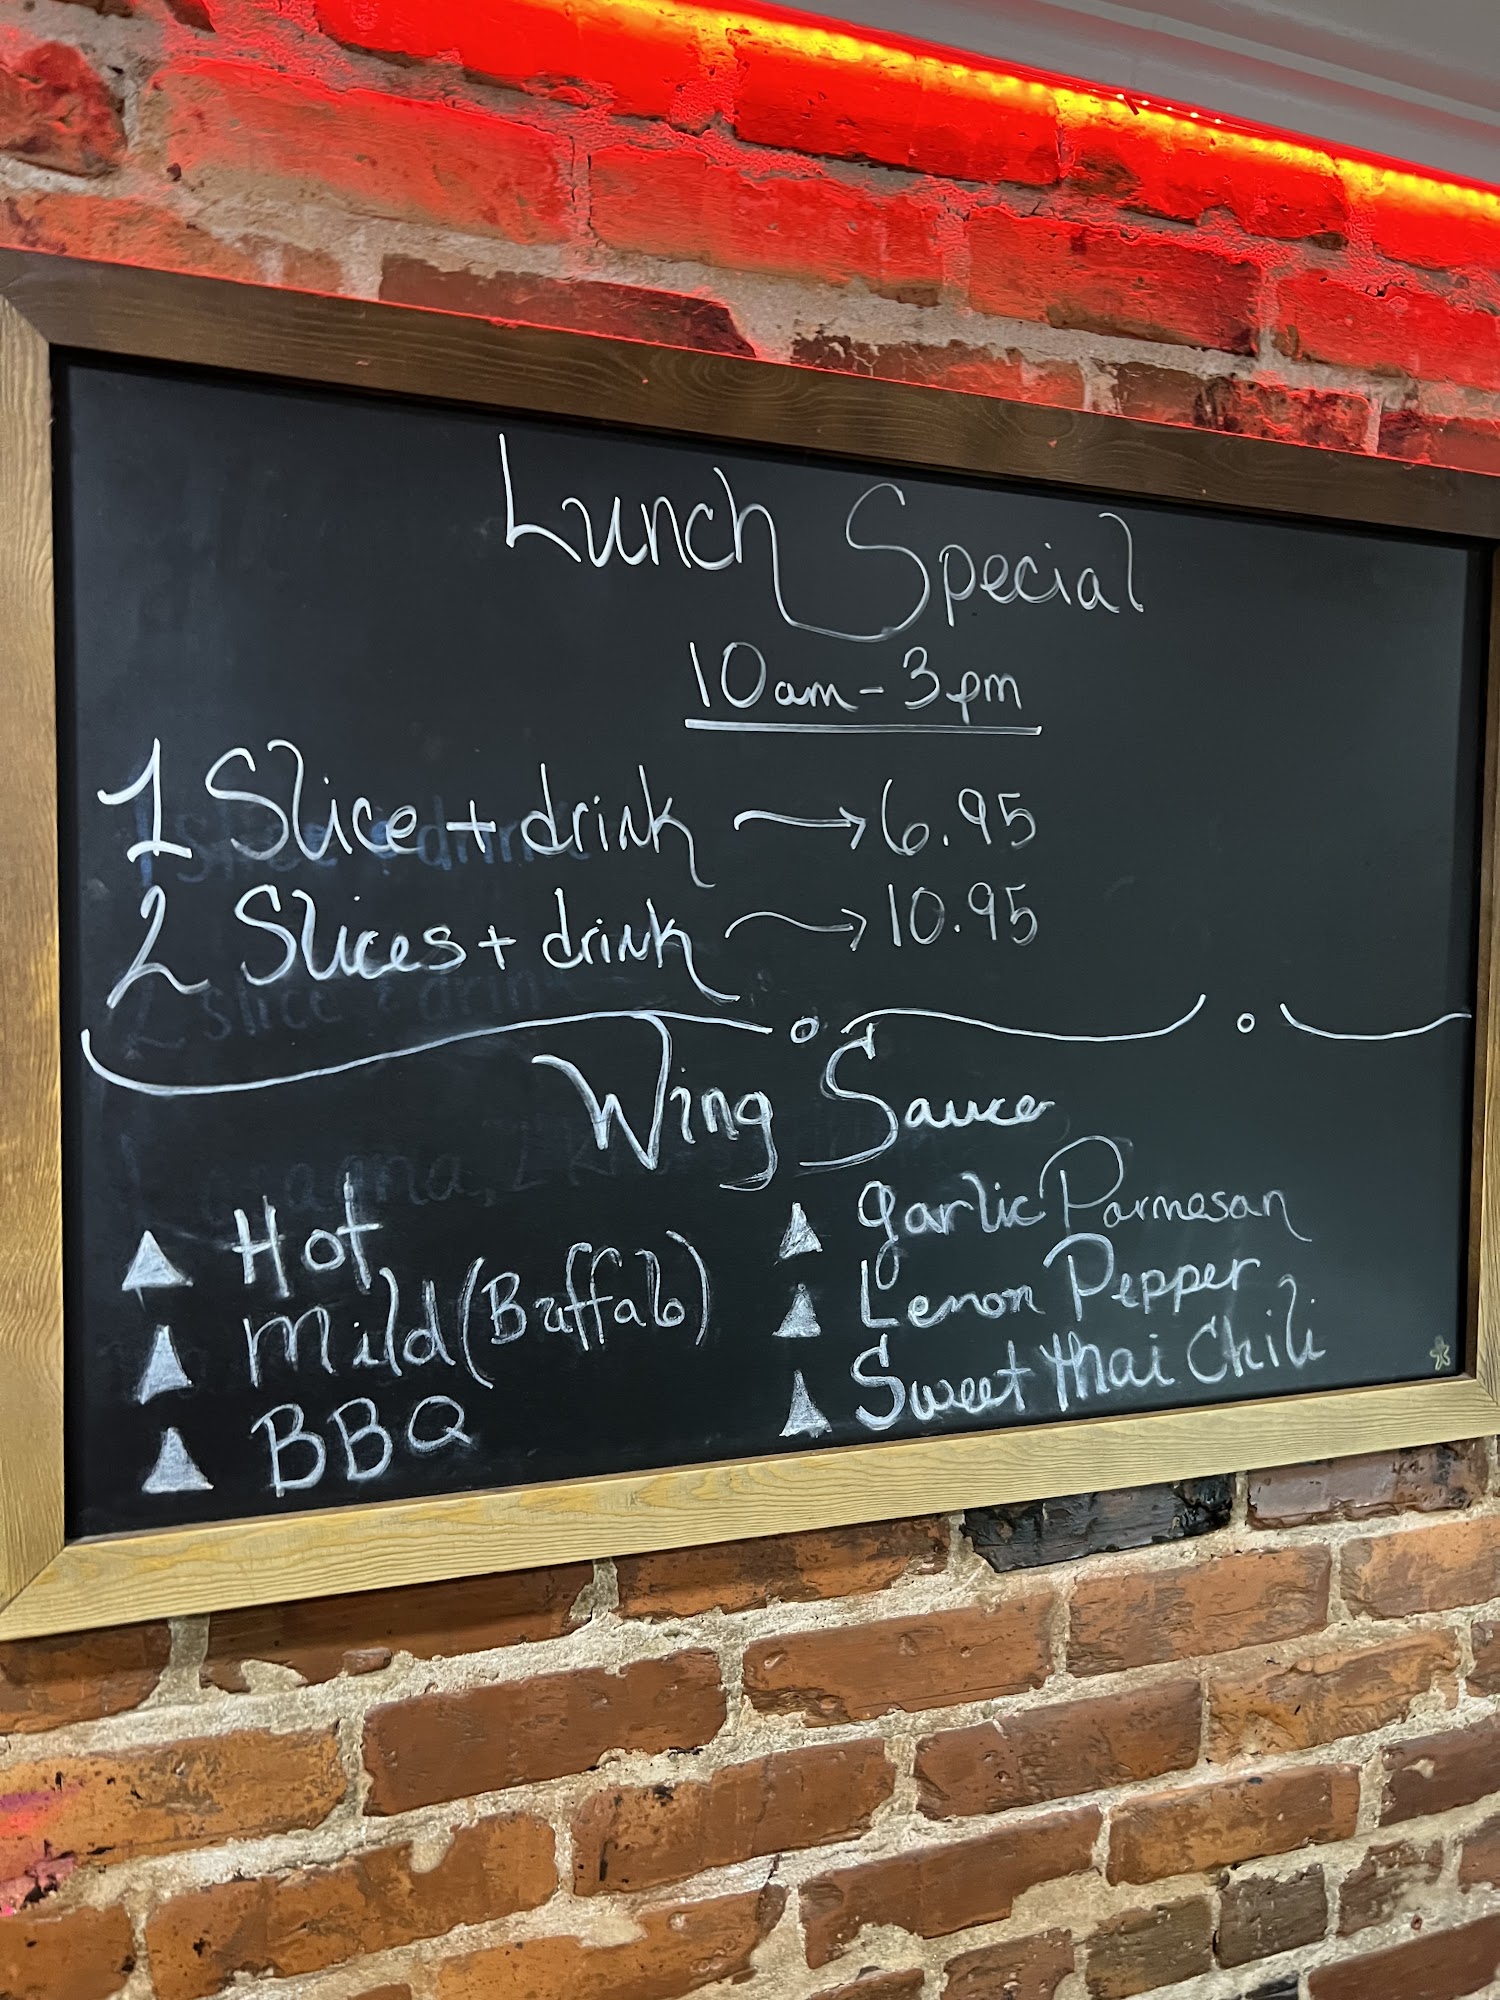 Lunch Special
10am - 3pm
1 Slice + drink → 6.95
2 Slices + drink → 10.95
Wing Sauce
▲ Hot
▲ Mild (Buffalo)
▲ BBQ
▲ garlic Parmesan
▲ Lemon Pepper
▲ Sweet thai Chili